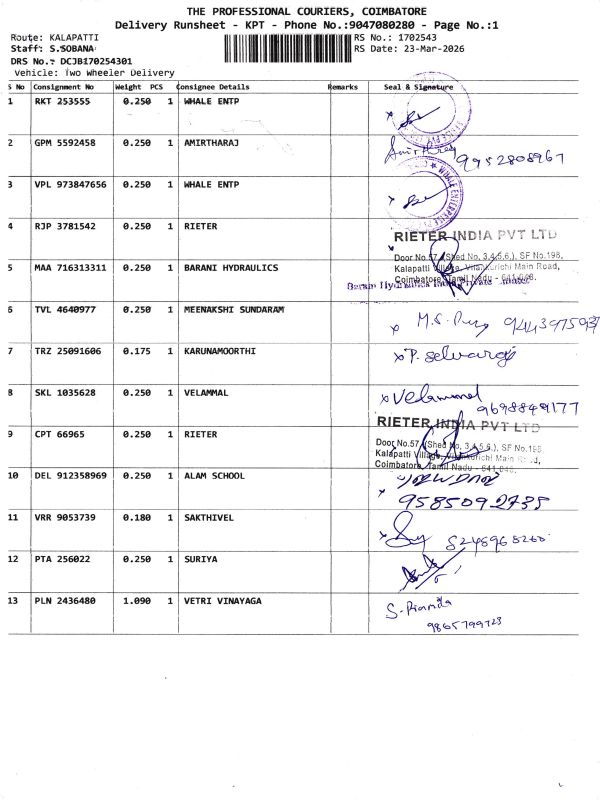 THE PROFESSIONAL COURIERS, COIMBATORE
Delivery Runsheet - KPT - Phone No.:9047080280 - Page No.:1
Route: KALAPATTI RS No.: 1702543
Staff: S.SOBANA RS Date: 23-Mar-2026
DRS No.: DCJB170254301
Vehicle: Two Wheeler Delivery
S No Consignment No Weight PCS Consignee Details Remarks Seal & Signature
1 RKT 253555 0.250 1 WHALE ENTP
2 GPM 5592458 0.250 1 AMIRTHARAJ Amirtharaj 9952808967
3 VPL 973847656 0.250 1 WHALE ENTP WHALE ENTERPRISE
4 RJP 3781542 0.250 1 RIETER RIETER INDIA PVT LTD
Door No.57, (Shed No. 3,4,5,6,), SF No.198,
Kalapatti Village, Vilankurichi Main Road,
Coimbatore, Tamil Nadu - 641 048.
5 MAA 716313311 0.250 1 BARANI HYDRAULICS Barani Hydraulics India Private Limited
6 TVL 4640977 0.250 1 MEENAKSHI SUNDARAM M.S.
7 TRZ 25091606 0.175 1 KARUNAMOORTHI P. Selvaraj
8 SKL 1035628 0.250 1 VELAMMAL Velammal 9698849177
9 CPT 66965 0.250 1 RIETER RIETER INDIA PVT LTD
Door No.57, (Shed No. 3,4,5,6,), SF No.198
Kalapatti Village, Vilankurichi Main Road,
Coimbatore, Tamil Nadu - 641 048.
10 DEL 912358969 0.250 1 ALAM SCHOOL 9585092738
11 VRR 9053739 0.180 1 SAKTHIVEL
12 PTA 256022 0.250 1 SURIYA
13 PLN 2436480 1.090 1 VETRI VINAYAGA S.
9865799723